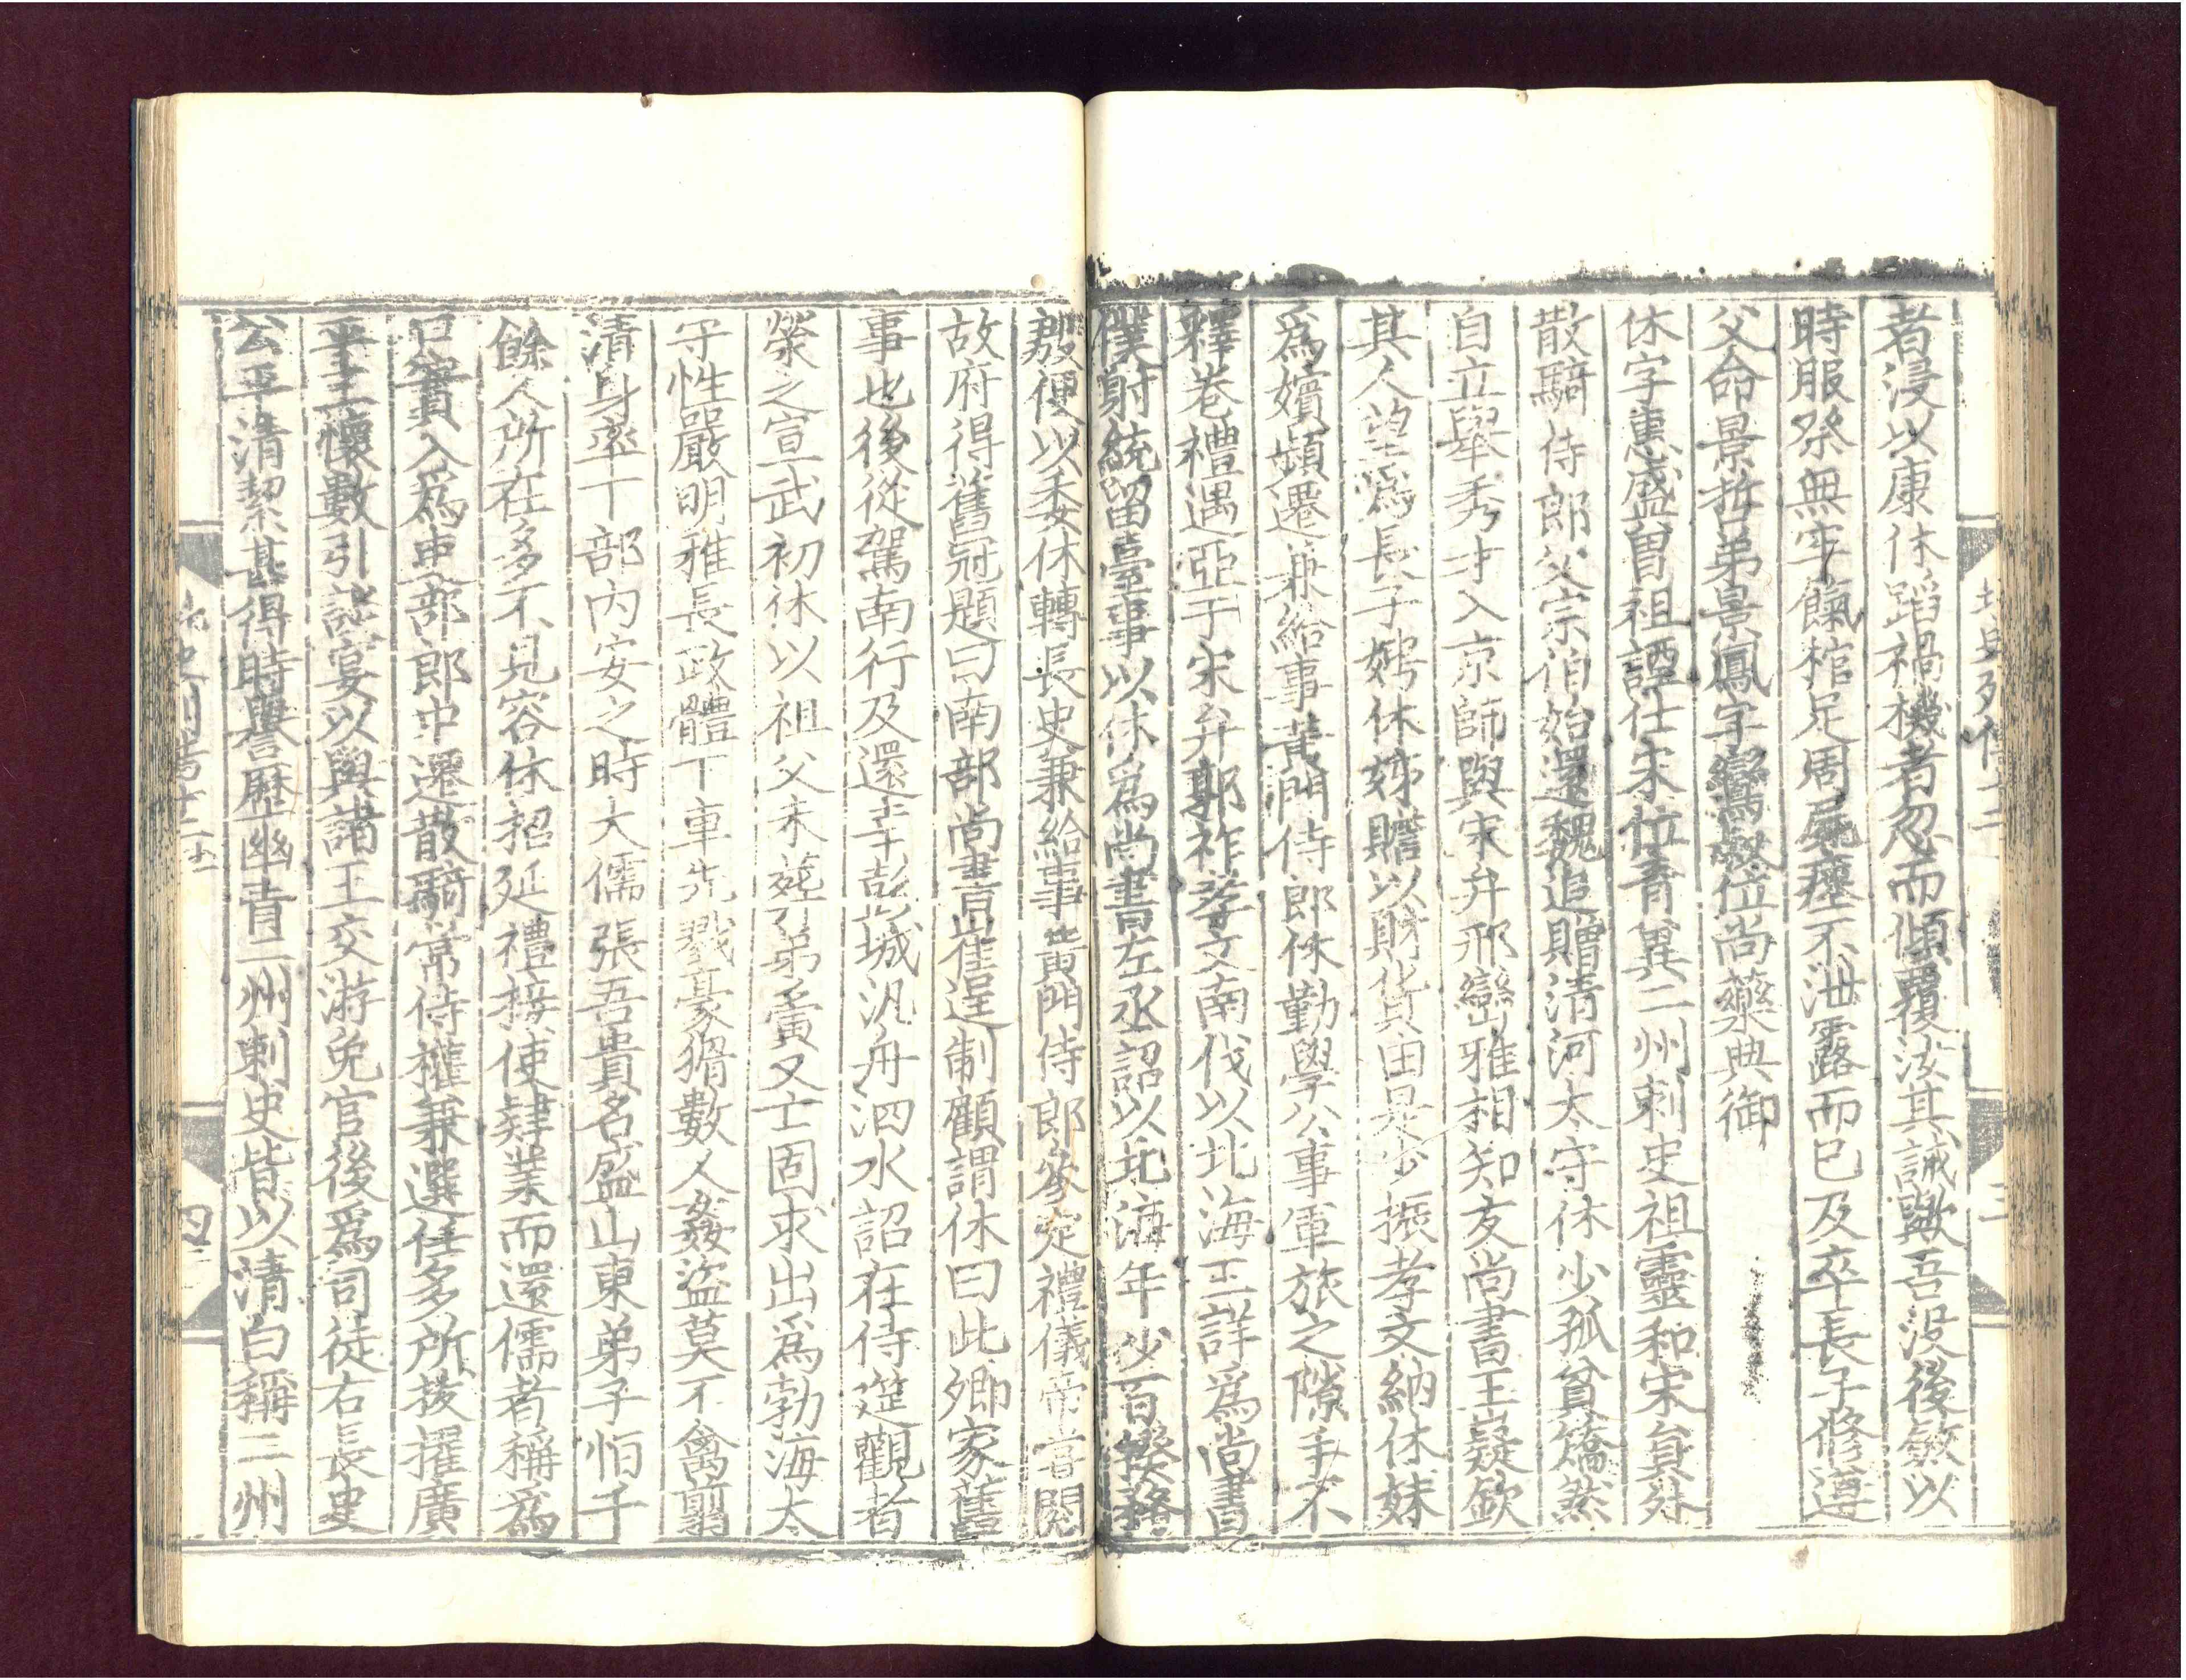 者浸以康休蹈禍機者忽而傾覆汝其誡歟吾没後斂以
時服祭無牢餼棺足周屍瘞不泄露而已及卒長子修遵
父命景哲弟景鳳字鸞叔位尚藥典御
休字惠盛曽祖諲仕宋位青異二州刺史祖靈和宋貟外
散騎侍郎父宗伯始還魏追贈清河太守休少孤貧矯然
自立舉秀才入京師與宋弁邢巒雅相知友尚書王嶷欽
其人望爲長子娉休姊贍以財貨由是少振孝文納休妹
爲嬪頻遷兼給事黄門侍郎休勤學公事軍旅之隙手不
釋卷禮遇亞于宋弁郭祚孝文南伐以北海王詳爲尚書
僕射統留臺事以休爲尚書左丞詔以北海年少百揆務
殷便以委休轉長史兼給事黄門侍郎叅定禮儀帝嘗閱
故府得舊冠題曰南部尚書崔逞制顧謂休曰此卿家舊
事也後從駕南行及還幸彭城汎舟泗水詔在侍筵觀者
榮之宣武初休以祖父未葬弟夤又亡固求出爲勃海太
守性嚴明雅長政體下車先戮豪猾數人姦盜莫不禽翦
清身率下部内安之時大儒張吾貴名盛山東弟子恒千
餘人所在多不見容休招延禮接使肄業而還儒者稱爲
口實入爲吏部郎中遷散騎常侍權兼選任多所拔擢廣
平王懷數引談宴以與諸王交游免官後爲司徒右長史
公平清絜甚得時譽歷幽青二州刺史皆以清白稱二州
北史列傳十二
三
北史列傳十二
四